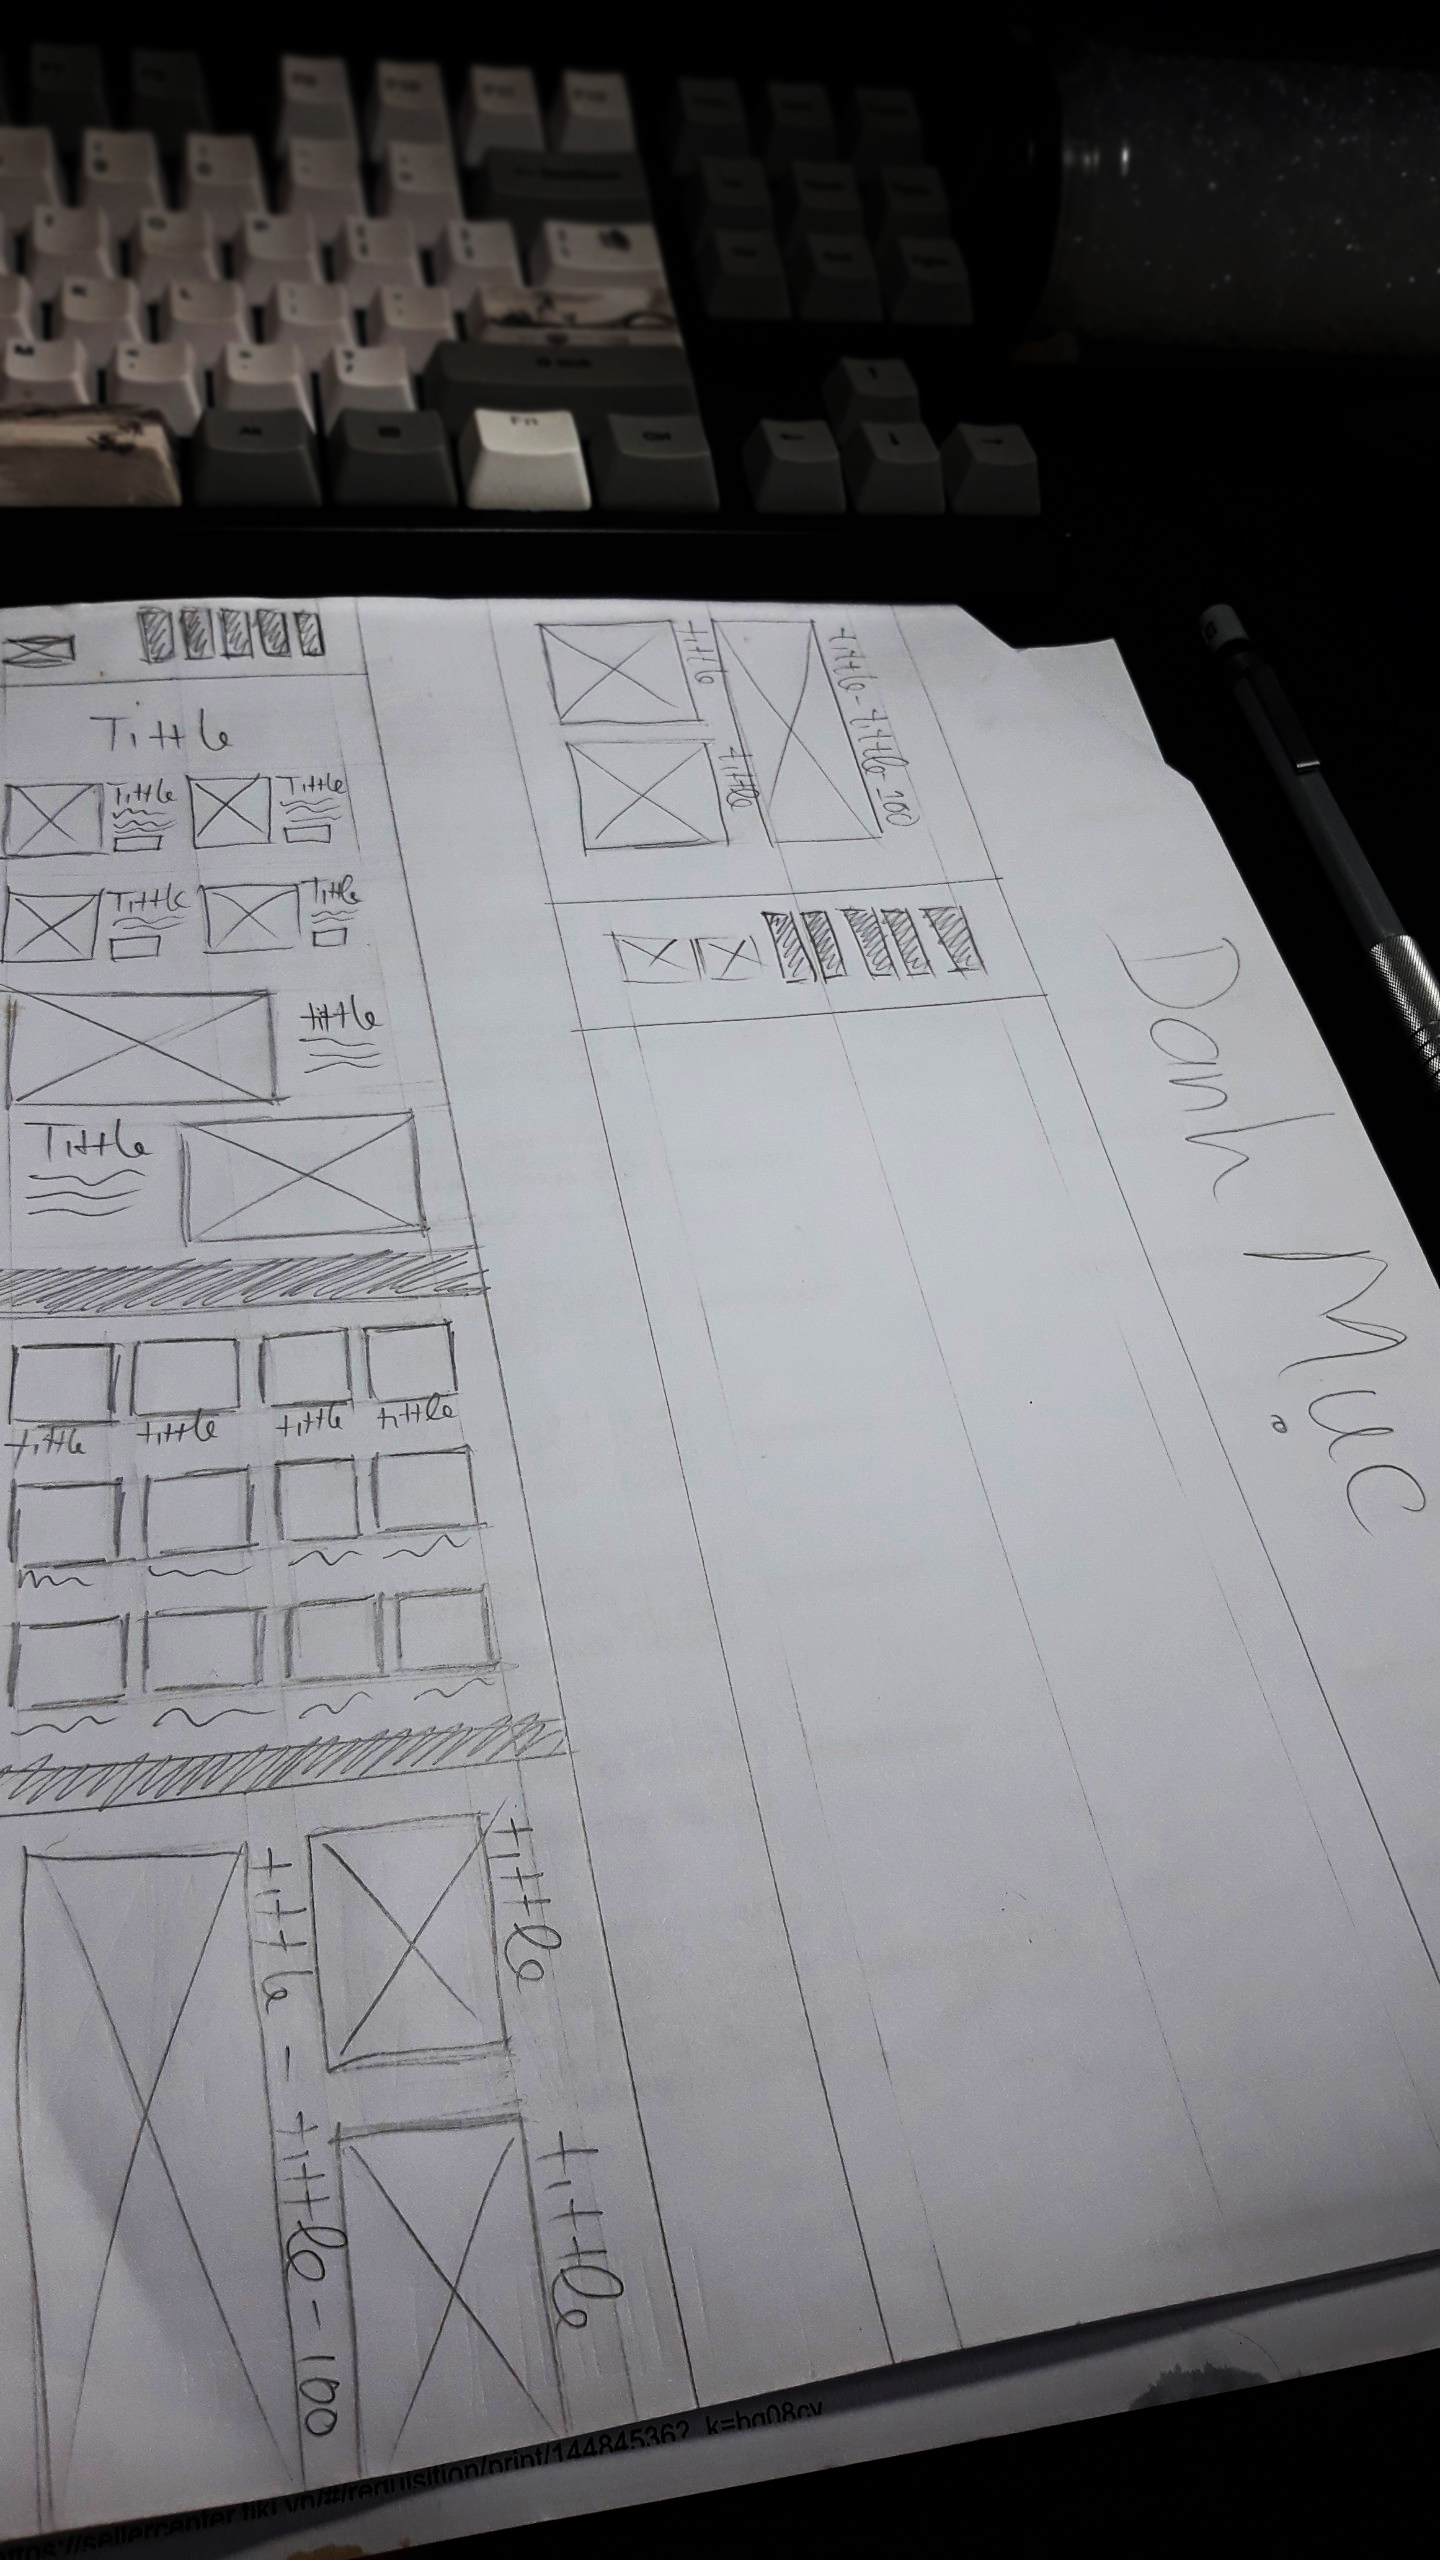 Fn
Ctrl
Tittle
Tittle
Tittle
Tittle
Tittle
tittle
Tittle
tittle
tittle
tittle
tittle
tittle
tittle - tittle - 100
tittle
tittle
tittle
tittle - tittle - 100
Danh Mục
https://sellercenter.tiki.vn/#/requisition/print/144845362?_k=bg08cv